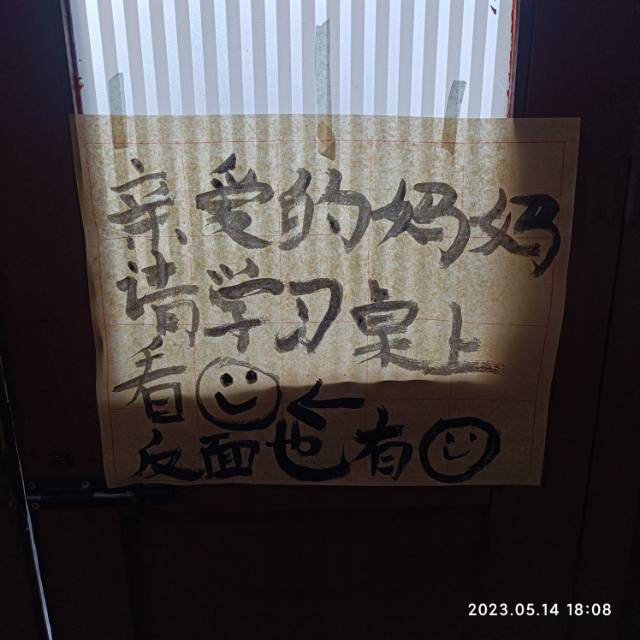 亲爱的妈妈
请学习桌上
看
反面也有
2023.05.14 18:08